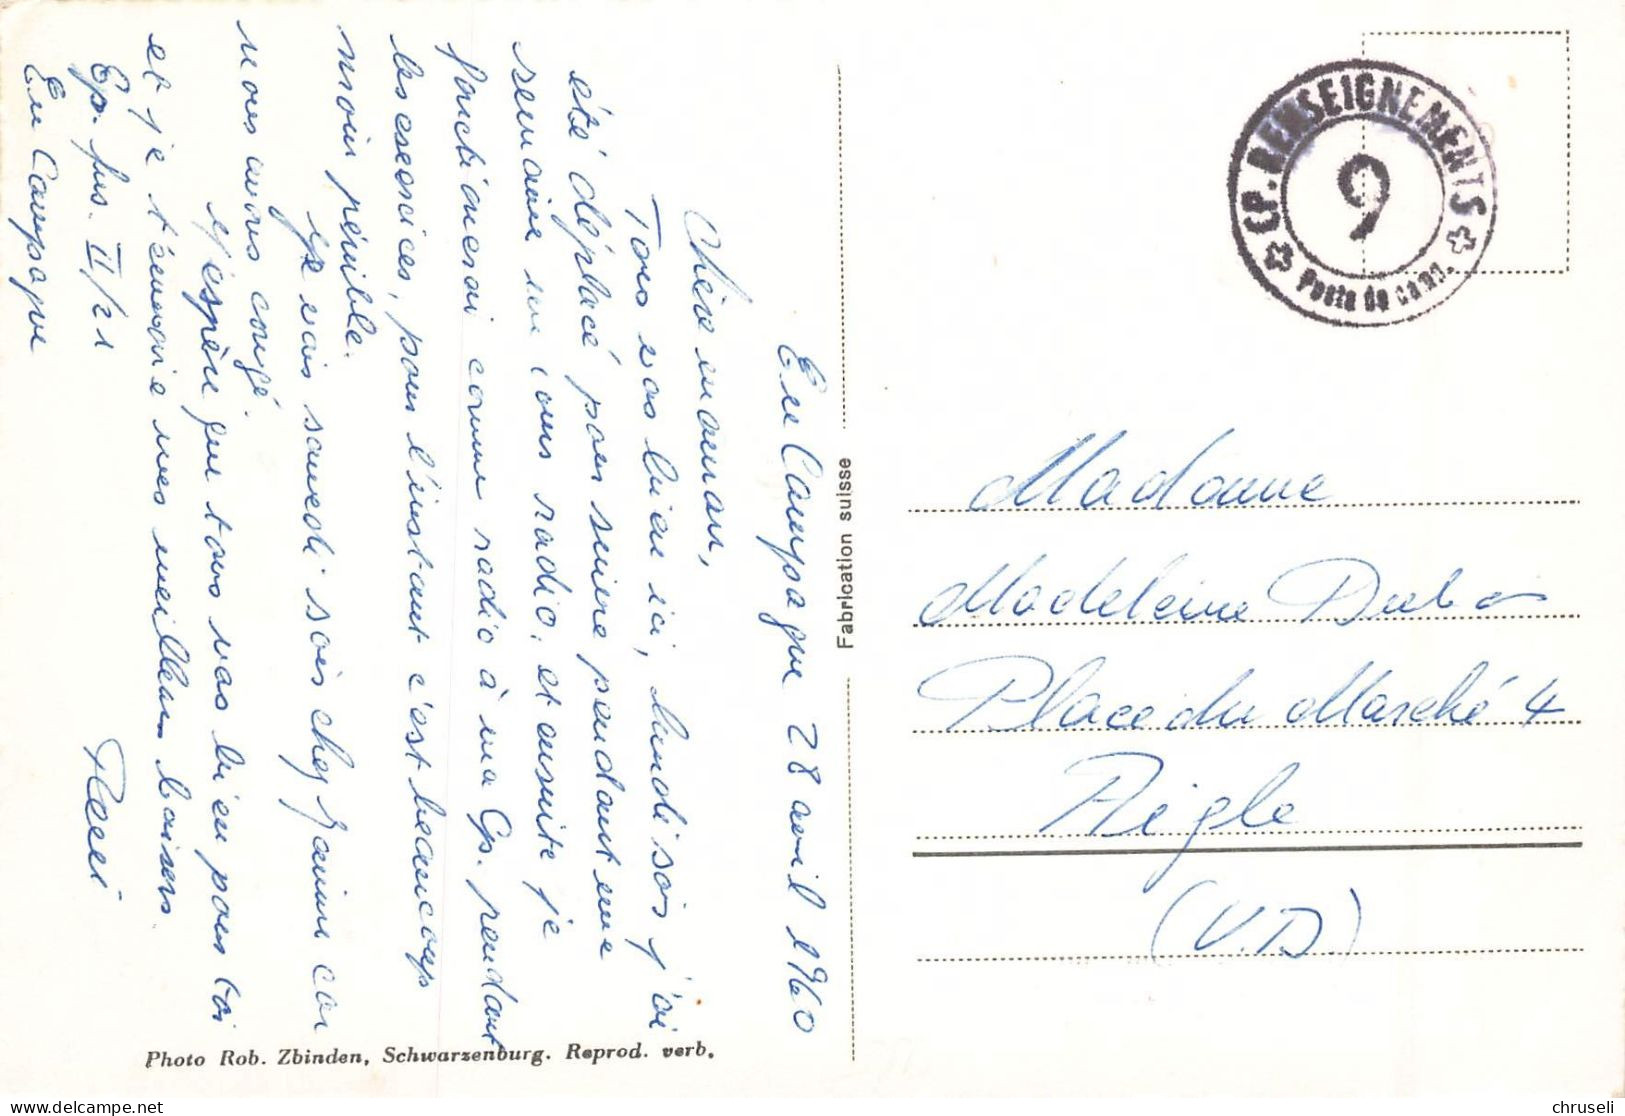 En Campagne 28 avril 1960
Chère maman,
Tous vas bien ici, lundi soir j'ai
été déplacé pour suivre pendant une
semaine un cours radio, et ensuite je
fonctionerai comme radio à ma Cp. pendant
les exercices, pour l'instant c'est beaucoup
moin pénible.
Je vais samedi soir chez Janine car
nous avons congé.
J'espère que tous vas bien pour toi
et je t'envoie mes meilleurs baisers.
Cp. fus. II/21
En Campagne
CP. RENSEIGNEMENTS
9
Poste de camp.
Fabrication suisse
Madame
Madeleine Dubois
Place du Marché 4
Aigle
(V.D)
Photo Rob. Zbinden, Schwarzenburg. Reprod. verb.
chruseli